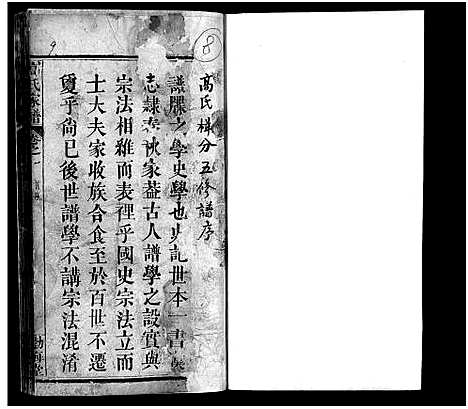 8
高氏梯分五修譜序
譜牒之學史學也史記世本一書
志隸秩家葢古人譜學之設實與
宗法相維而表裡乎國史宗法立而
士大夫家收族合食至於百世不遷
夐乎尙已後世譜學不講宗法混淆
高氏家譜
卷之一